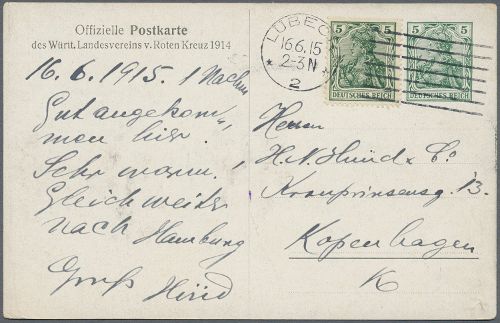 Offizielle Postkarte
des Württ. Landesvereins v. Roten Kreuz 1914
16. 6. 1915. 1 Nachm
Gut angekom-
men hier.
Sehr warm!
Gleich weiter
nach Hamburg
Gruß Hünd
LÜBECK
16.6.15
2-3 N
* 2 *
5 5
DEUTSCHES REICH
5 5
DEUTSCHES REICH
Herren
H. N. Hünd & Co
Kronprinsensg. 13.
Kopenhagen
K